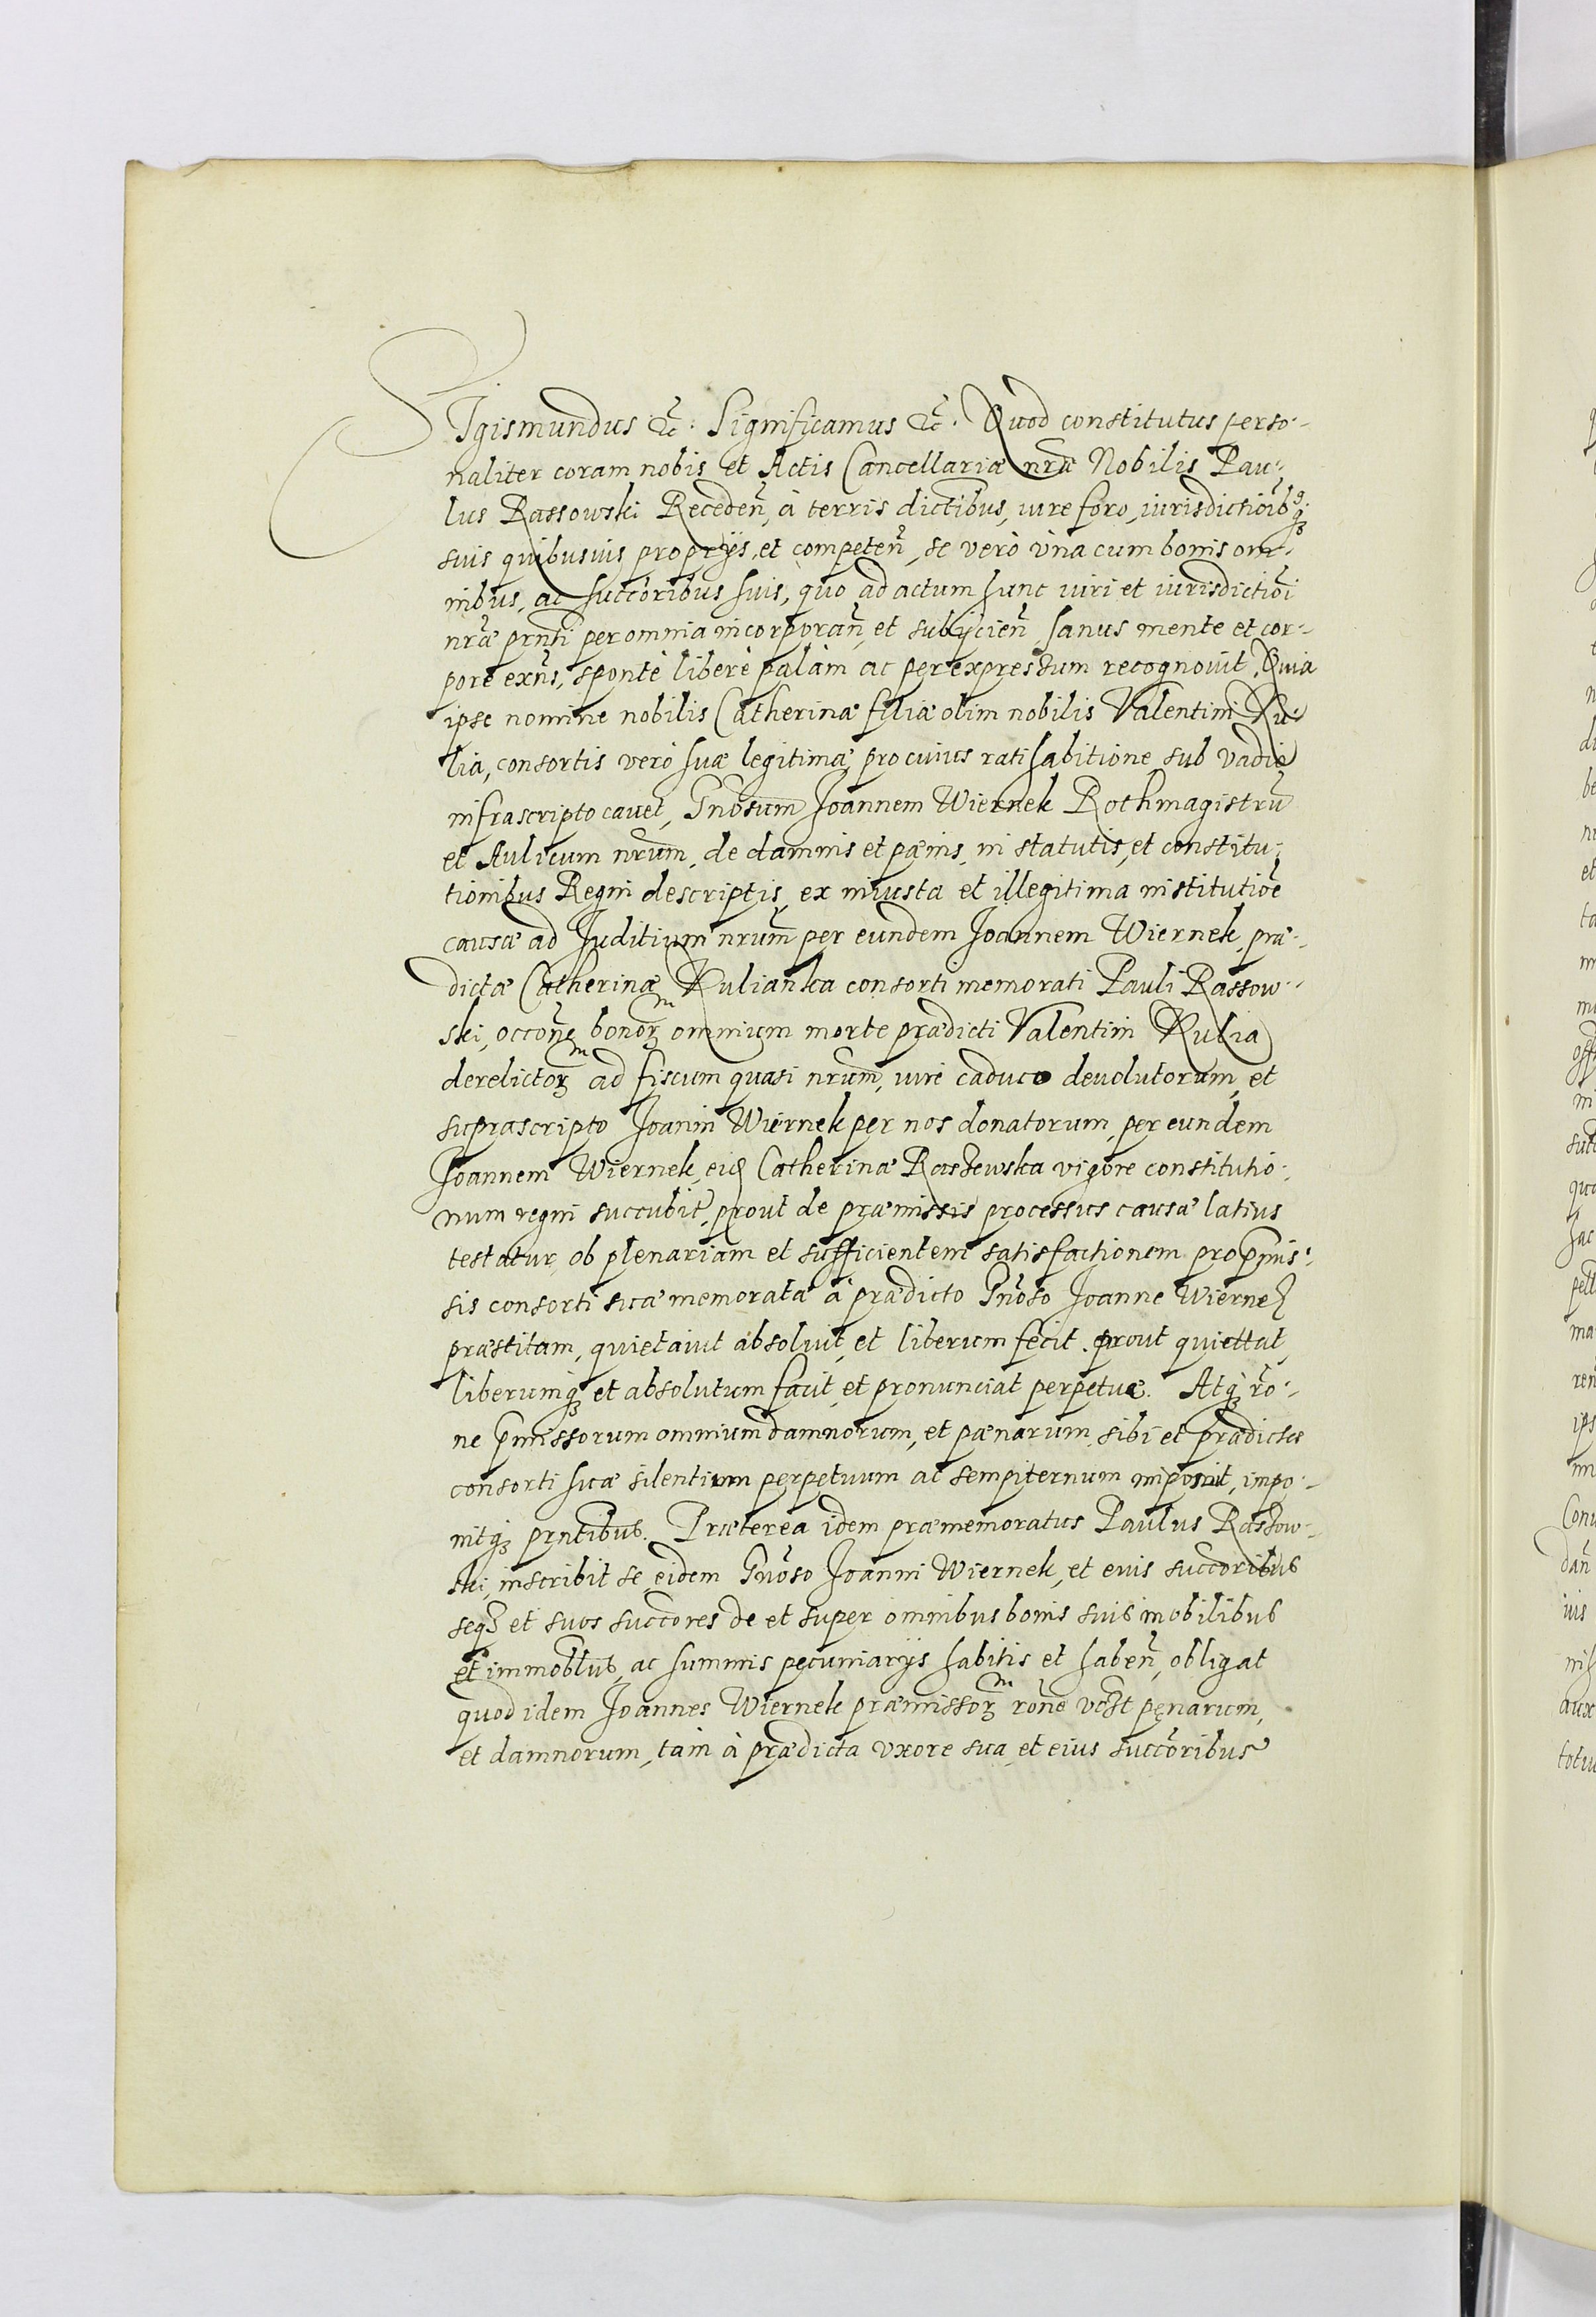 SIgismundus &c̃. Significamus &c̃. Quod constitutus perso-
naliter coram nobis et Actis Cancellariæ nr̃æ Nobilis Pau-
lus Rassowski Receden̄, à terris dictibus, iure foro, iurisdictioībq́ꝫ
suis quibusuis proprijs, et competen̄, se verò vna cum bonis om-
nibus, ac succ̄oribus suis, quo ad actum hunc iuri et iurisdictiōi
nr̃æ pr̃nti per omnia incorporan̄, et subijcien̄, sanus mente et cor-
pore exn̄s, spontè liberè palàm ac per expressum recognouit. Quia
ipse nomine nobilis Catherinæ filiæ olim nobilis Valentini Ku-
lia, consortis verò suæ legitimæ, pro cuius ratihabitione sub vadio
infrascripto cauet, Gn̄osum Joannem Wiernek Rothmagistrū
et Aulicum nr̃um, de damnis et pænis, in statutis, et constitu-
tionibus Regni descriptis, ex iniusta et illegitima institutiōe
causæ ad Juditium nr̃um per eundem Joannem Wiernek, præ-
dictæ Catherinæ Kulianka consorti memorati Pauli Rassow-
ski, occōne bonoꝝm omnium morte prædicti Valentini Kulia
derelictoꝝm ad fiscum quasi nr̃um, iure caduco deuolutorum, et
suprascripto Joanni Wiernek per nos donatorum, per eundem
Joannem Wiernek, eid Catherinæ Raszewska vigore constitutio-
num regni succubit, prout de præmissis processus causæ latius
testatur, ob plenariam et sufficientem satisfactionem pro p̄mis-
sis consorti suæ memoratæ à prædicto Gn̄oso Joanne Wiernek
præstitam, quietauit absoluit, et liberum fecit. prout quiettat,
liberumqꝫ et absolutum facit, et pronunciat perpetuæ. Atqꝫ rō-
ne p̄missorum omnium damnorum, et pænarum, sibi et prædictæ
consorti suæ silentium perpetuum ac sempiternum imposuit, impo-
nitqꝫ prñtibus. Præterea idem præmemoratus Paulus Raszow-
ski, inscribit se eidem Gn̄oso Joanni Wiernek, et euis succ̄oribus
seqꝫ et suos succ̄ores de et super omnibus bonis suis mobilibus
et immoblibus, ac summis pecuniarijs habitis et haben̄, obligat
quod idem Joannes Wiernek præmissoꝝm rōne vt st pęnarum,
et damnorum, tàm à prædicta vxore sua, et eius succ̄oribus